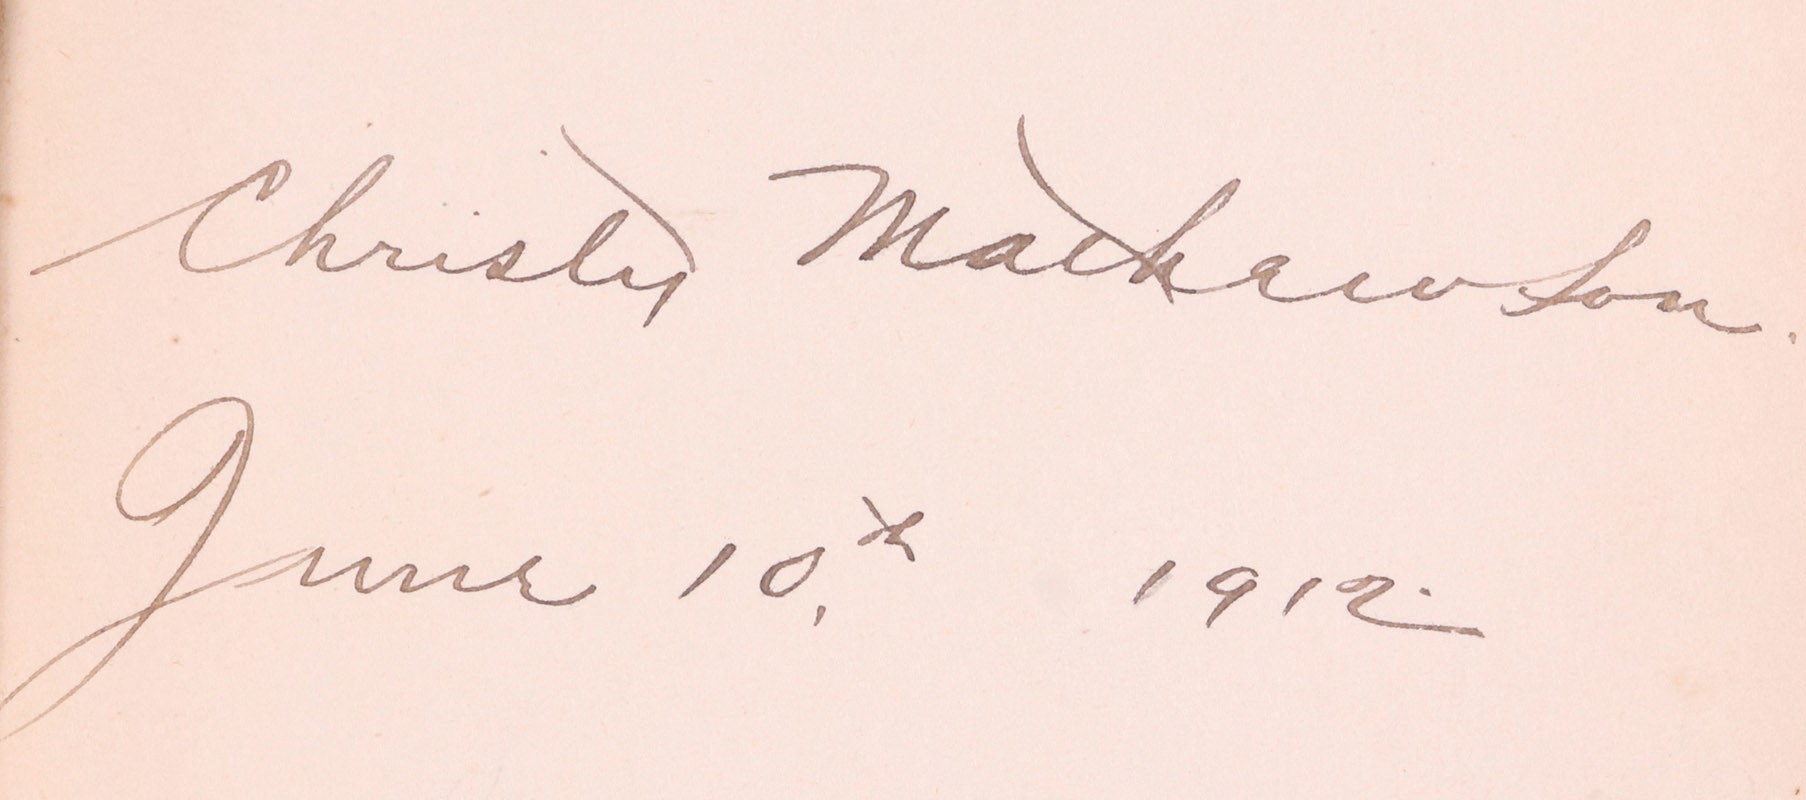 Christy Mathewson.
June 10th 1912